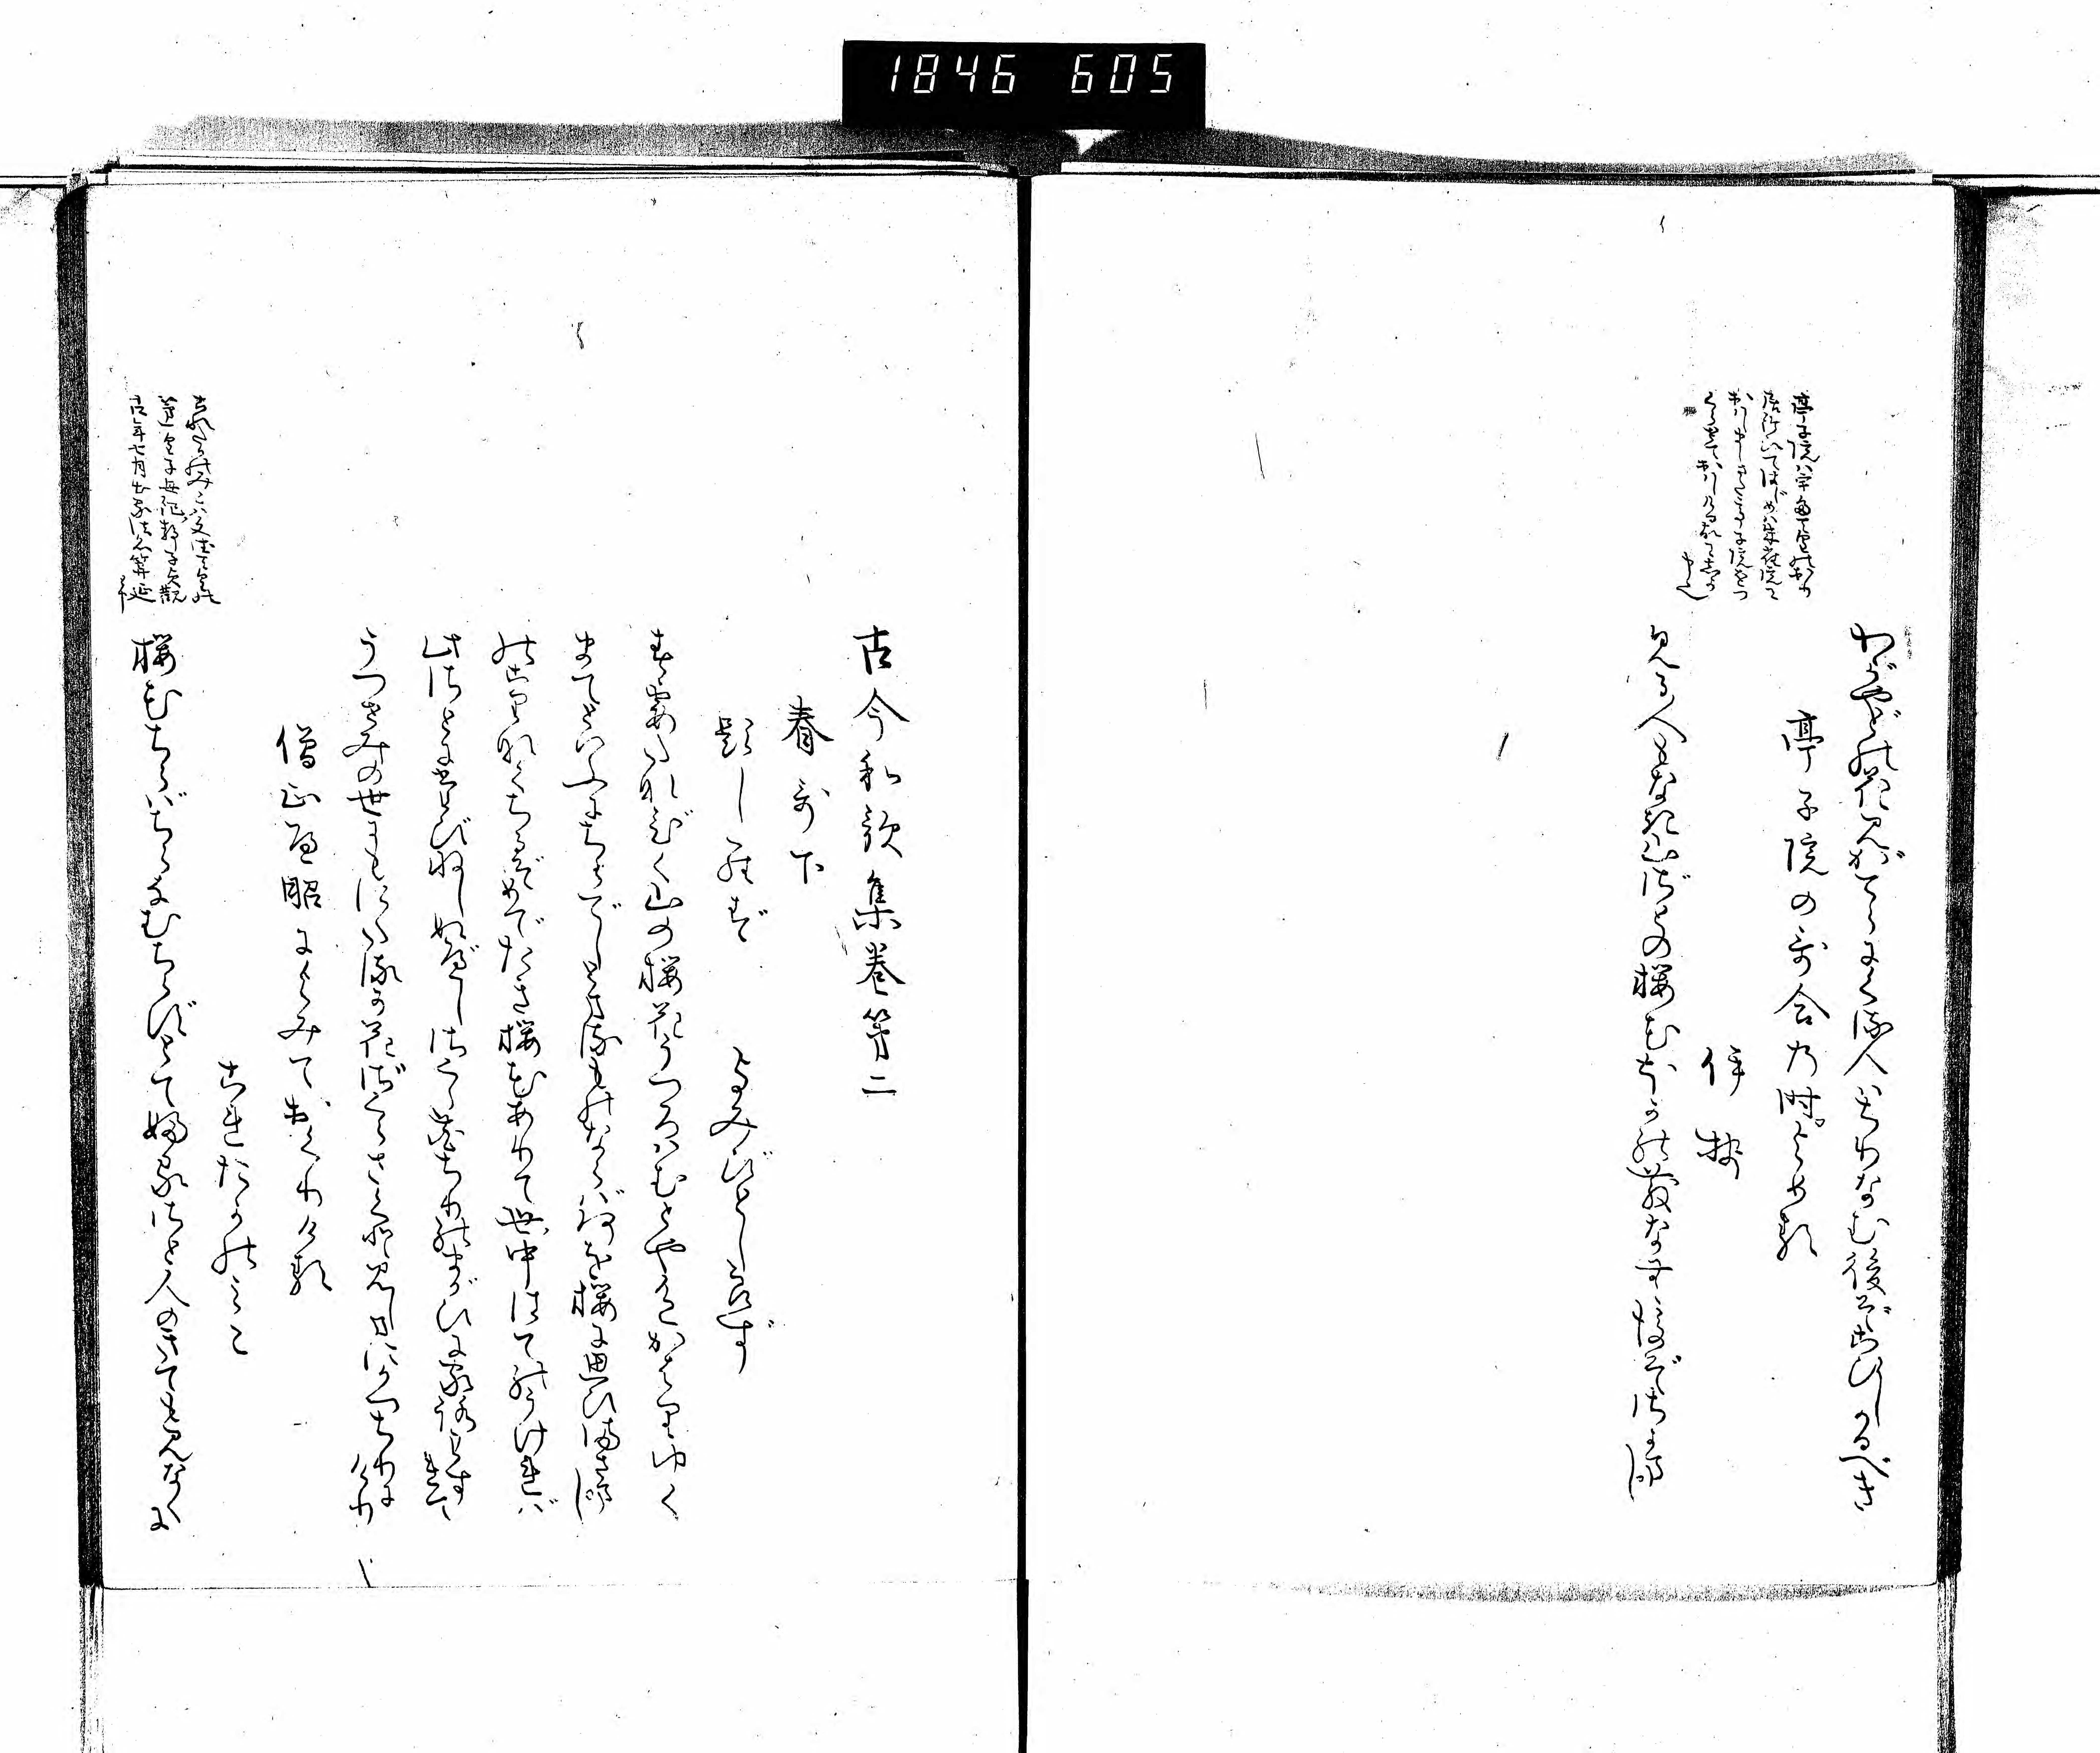 1846 605
わがやどの花見がてらにくる人はちりなむ後ぞこひしかるべき
亭子院の哥合の時よめる
伊勢
見る人もなき山ざとの桜花ほかのちりなむ後ぞさかまし
亭子院ハ宇多
古今和歌集巻第二
春哥下
題しらず
よみびとしらず
春霞たなびく山の桜花うつろはむとや色かはりゆく
まてといふにちらでしとまる物ならばなにを桜に思ひまさまし
のこりなくちるぞめでたき桜花ありて世中はてのうければ
此さとに旅ねしぬべしさくら花ちりのまがひに家路わすれて
うつせみの世にもにたるか花ざくらさくと見しまにかつちりにけり
僧正遍昭によみておくりける
これたかのみこ
桜花ちらばちらなむちらずとて故郷人のきても見なくに
これたかのみこハ文徳天皇の
第一皇子母紀静子貞観
十四年七月出家法名算延